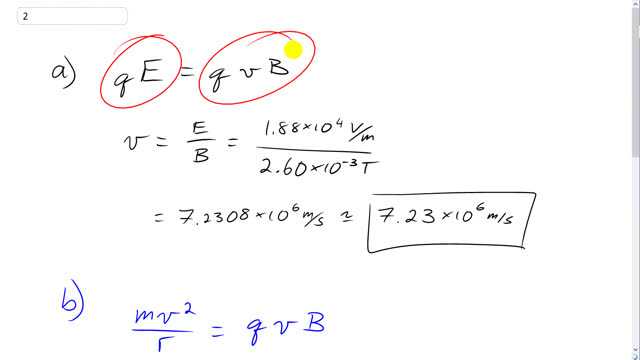 2
a) qE = qvB
v = E/B = 1.88×10⁴ V/m / 2.60×10⁻³ T
= 7.2308×10⁶ m/s ≃ 7.23×10⁶ m/s
b) mv²/r = qvB